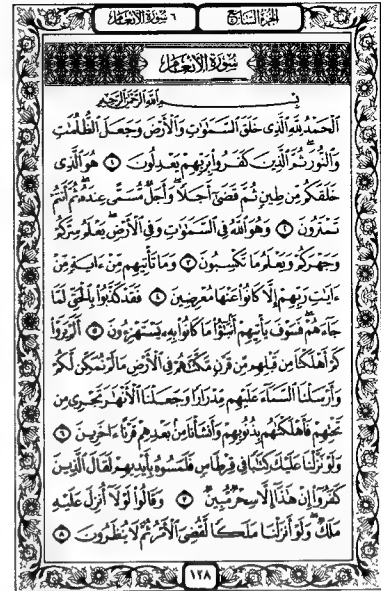 الجزء السابع ٦ سورة الأنعام
سورة الأنعام
بِسْمِ ٱللَّهِ ٱلرَّحْمَٰنِ ٱلرَّحِيمِ
ٱلْحَمْدُ لِلَّهِ ٱلَّذِى خَلَقَ ٱلسَّمَٰوَٰتِ وَٱلْأَرْضَ وَجَعَلَ ٱلظُّلُمَٰتِ
وَٱلنُّورَ ۖ ثُمَّ ٱلَّذِينَ كَفَرُوا۟ بِرَبِّهِمْ يَعْدِلُونَ ١ هُوَ ٱلَّذِى
خَلَقَكُم مِّن طِينٍ ثُمَّ قَضَىٰٓ أَجَلًا ۖ وَأَجَلٌ مُّسَمًّى عِندَهُۥ ۖ ثُمَّ أَنتُمْ
تَمْتَرُونَ ٢ وَهُوَ ٱللَّهُ فِى ٱلسَّمَٰوَٰتِ وَفِى ٱلْأَرْضِ ۖ يَعْلَمُ سِرَّكُمْ
وَجَهْرَكُمْ وَيَعْلَمُ مَا تَكْسِبُونَ ٣ وَمَا تَأْتِيهِم مِّنْ ءَايَةٍ مِّنْ
ءَايَٰتِ رَبِّهِمْ إِلَّا كَانُوا۟ عَنْهَا مُعْرِضِينَ ٤ فَقَدْ كَذَّبُوا۟ بِٱلْحَقِّ لَمَّا
جَآءَهُمْ ۖ فَسَوْفَ يَأْتِيهِمْ أَنۢبَٰٓؤُا۟ مَا كَانُوا۟ بِهِۦ يَسْتَهْزِءُونَ ٥ أَلَمْ يَرَوْا۟
كَمْ أَهْلَكْنَا مِن قَبْلِهِم مِّن قَرْنٍ مَّكَّنَّٰهُمْ فِى ٱلْأَرْضِ مَا لَمْ نُمَكِّن لَّكُمْ
وَأَرْسَلْنَا ٱلسَّمَآءَ عَلَيْهِم مِّدْرَارًا وَجَعَلْنَا ٱلْأَنْهَٰرَ تَجْرِى مِن
تَحْتِهِمْ فَأَهْلَكْنَٰهُم بِذُنُوبِهِمْ وَأَنشَأْنَا مِنۢ بَعْدِهِمْ قَرْنًا ءَاخَرِينَ ٦
وَلَوْ نَزَّلْنَا عَلَيْكَ كِتَٰبًا فِى قِرْطَاسٍ فَلَمَسُوهُ بِأَيْدِيهِمْ لَقَالَ ٱلَّذِينَ
كَفَرُوٓا۟ إِنْ هَٰذَآ إِلَّا سِحْرٌ مُّبِينٌ ٧ وَقَالُوا۟ لَوْلَآ أُنزِلَ عَلَيْهِ
مَلَكٌ ۖ وَلَوْ أَنزَلْنَا مَلَكًا لَّقُضِىَ ٱلْأَمْرُ ثُمَّ لَا يُنظَرُونَ ٨
١٢٨